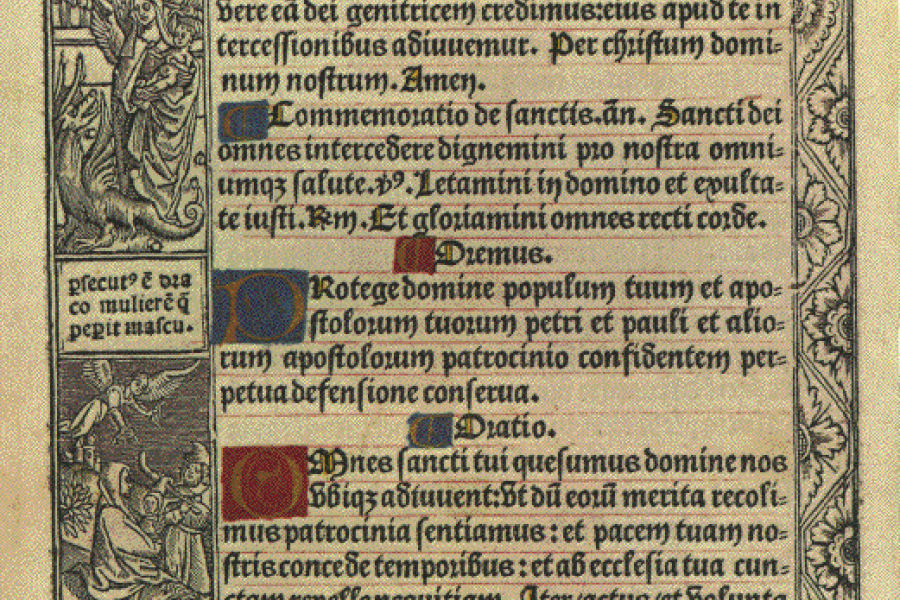 vere eā dei genitricem credimus:eius apud te in
tercessionibus adiuuemur. Per christum domi=
num nostrum. Amen.
Commemoratio de sanctis.ān. Sancti dei
omnes intercedere dignemini pro nostra omni=
umqꝫ salute.ꝟꝰ.Letamini in domino et exulta=
te iusti.Rm.Et gloriamini omnes recti corde.
Oremus.
PRotege domine populum tuum et apo=
stolorum tuorum petri et pauli et alio=
rum apostolorum patrocinio confidentem per=
petua defensione conserua.
Oratio.
OMnes sancti tui quesumus domine nos
vbiqꝫ adiuuent:vt dū eorū merita recoli=
mus patrocinia sentiamus: et pacem tuam no=
stris concede temporibus: et ab ecclesia tua cun=
ctam repelle nequitiam. Iter/actus/et volunta
ꝑsecutꝰ ē dra
co mulierē q̄
peperit mascu.